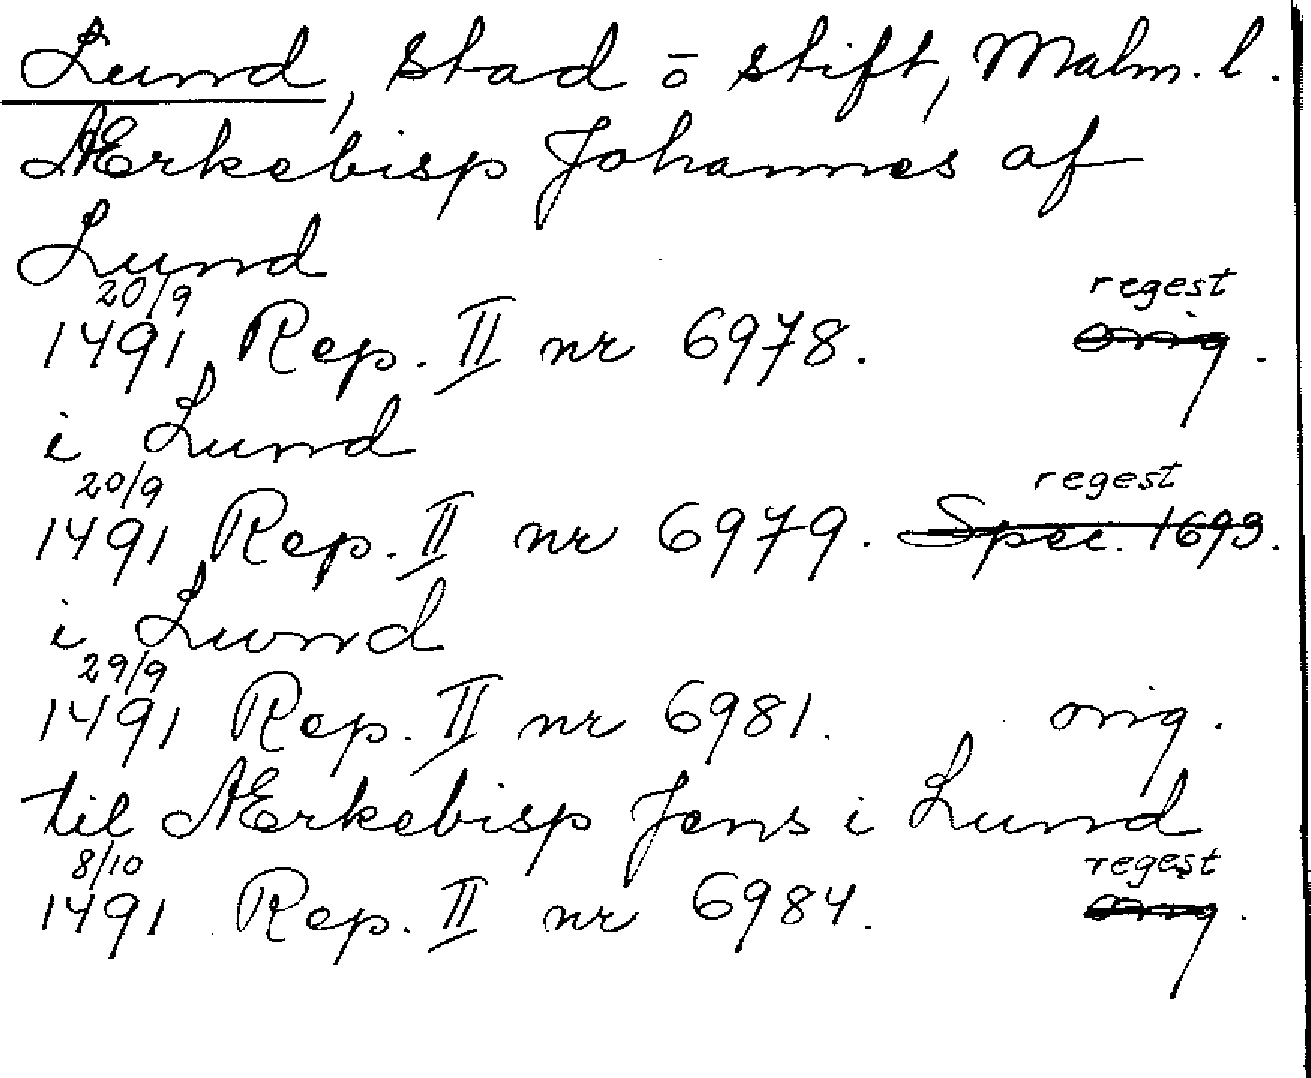 Lund, stad ō stift, Malm. l.
Ærkebisp Johannes af
Lund
20/9 regest
1491 Rep. II nr 6978. orig.
i Lund
20/9 regest
1491 Rep. II nr 6979. Spec. 1693.
i Lund
29/9
1491 Rep. II nr 6981. orig.
til Ærkebisp Jens i Lund
8/10 regest
1491 Rep. II nr 6984. orig.